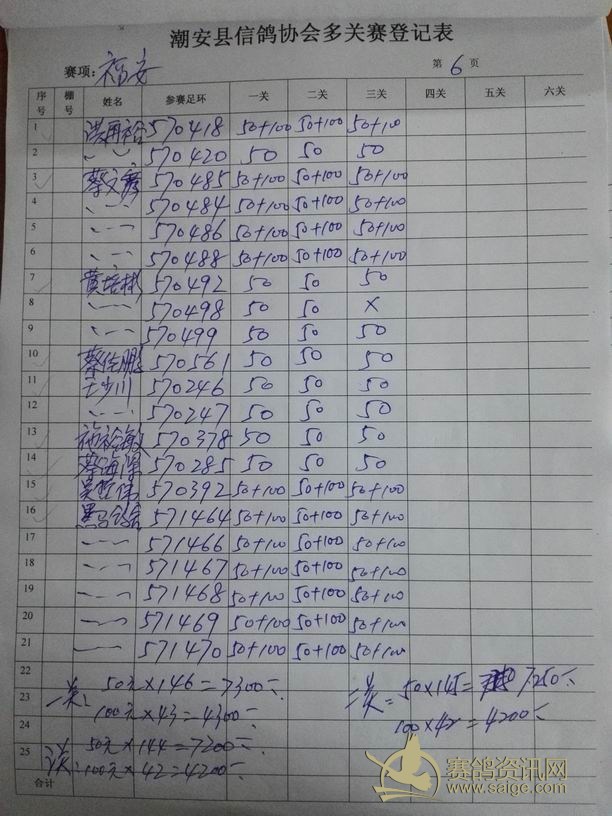 潮安县信鸽协会多关赛登记表
赛项: 福安 第 6 页
序号 棚号 姓名 参赛足环 一关 二关 三关 四关 五关 六关
1 570418 50+100 50+100 50+100
2 570420 50 50 50
3 570485 50+100 50+100 50+100
4 570484 50+100 50+100 50+100
5 570486 50+100 50+100 50+100
6 570488 50+100 50+100 50+100
7 黄培彬 570492 50 50 50
8 570498 50 50 ×
9 570499 50 50 50
10 570561 50 50 50
11 570246 50 50 50
12 570247 50 50 50
13 570378 50 50 50
14 蔡海深 570285 50 50 50
15 570392 50+100 50+100 50+100
16 黑马鸽舍 571464 50+100 50+100 50+100
17 571466 50+100 50+100 50+100
18 571467 50+100 50+100 50+100
19 571468 50+100 50+100 50+100
20 571469 50+100 50+100 50+100
21 571470 50+100 50+100 50+100
22
50元×146=7300
23 一关:
100元×43=4300
二关= 50×145= 7250
100×42=4200
24
50元×144=7200
25 三关: 100元×42=4200
合计
赛鸽资讯网
www.saige.com